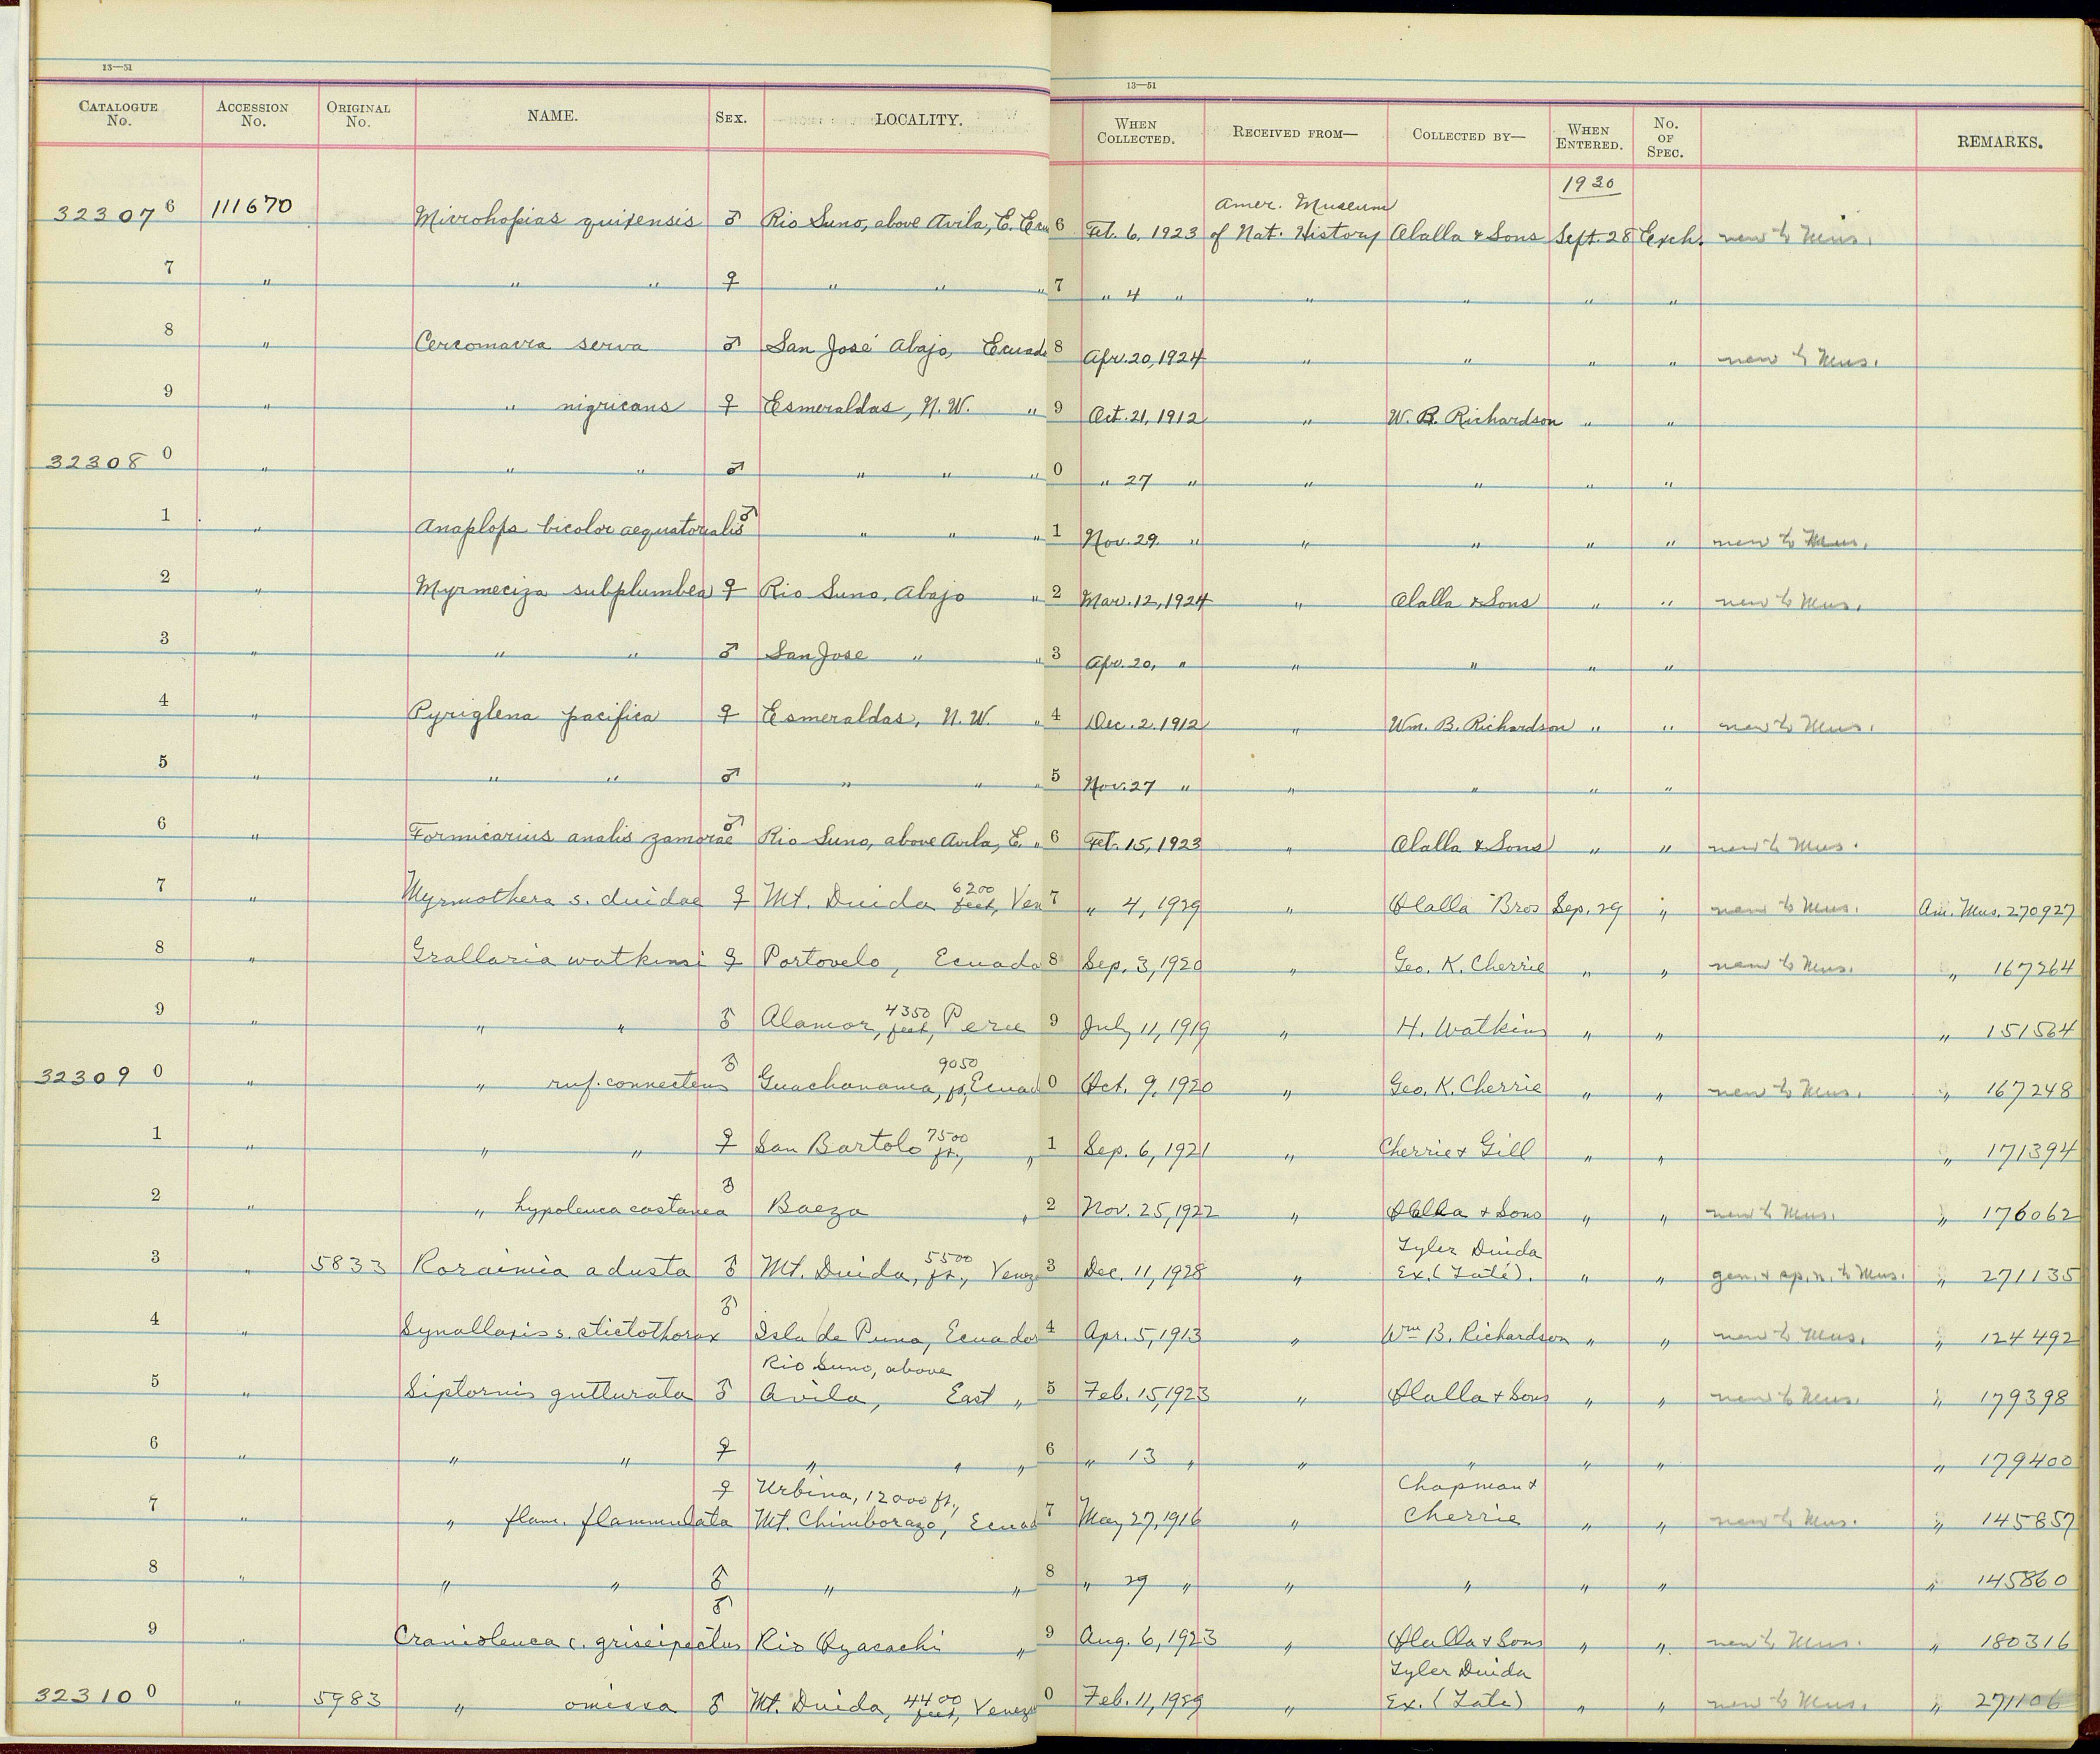 13—51
13—51
CATALOGUE No. ACCESSION No. ORIGINAL No. NAME. SEX. LOCALITY. WHEN COLLECTED. RECEIVED FROM— COLLECTED BY— WHEN ENTERED. No. OF SPEC. REMARKS.
1930
Amer. Museum
323076 111670 Microhopias quixensis ♂ Rio Suno, above Avila, E. Ecu 6 Feb. 6, 1923 of Nat. History Olalla & Sons Sept. 28 Exch. new to Mus.
7 " " " ♀ " " " 7 " 4 " " " " "
8 " Cercomacra serva ♂ San José Abajo, Ecuado 8 Apr. 20, 1924 " " " " new to Mus.
9 " " nigricans ♀ Esmeraldas, N.W. " 9 Oct. 21, 1912 " W. B. Richardson " "
323080 " " " ♂ " " " 0 " 27 " " " " "
1 " Anaplops bicolor aequatorialis ♂ " " " 1 Nov. 29. " " " " " new to Mus.
2 " Myrmeciza subplumbea ♀ Rio Suno, Abajo " 2 Mar. 12, 1924 " Olalla & Sons " " new to Mus.
3 " " " ♂ San Jose " " 3 Apr. 20, " " " " "
4 " Pyriglena pacifica ♀ Esmeraldas, N.W. " 4 Dec. 2. 1912 " Wm. B. Richardson " " new to Mus.
5 " " " ♂ " " " 5 Nov. 27 " " " " "
6 " Formicarius analis zamorae ♂ Rio Suno, above Avila, E. " 6 Feb. 15, 1923 " Olalla & Sons " " new to Mus.
7 " Myrmothera s. duidae ♀ Mt. Duida 6200 feet, Ven 7 " 4, 1929 " Olalla Bros Sep. 29 " new to Mus. Am. Mus. 270927
8 " Grallaria watkinsi ♀ Portovelo, Ecuado 8 Sep. 3, 1920 " Geo. K. Cherrie " " new to Mus. " 167264
9 " " " ♂ Alamor, 4350 feet, Peru 9 July 11, 1919 " H. Watkins " " " 151564
323090 " " ruf. connectens ♂ Guachanama, 9050 ft, Ecuad 0 Oct. 9, 1920 " Geo. K. Cherrie " " new to Mus. " 167248
1 " " " ♀ San Bartolo 7500 ft., " 1 Sep. 6, 1921 " Cherrie & Gill " " " 171394
2 " " hypoleuca castanea ♂ Baeza " 2 Nov. 25, 1922 " Olalla & Sons " " new to Mus. " 176062
Tyler Duida
3 " 5833 Roraimia adusta ♂ Mt. Duida, 5500 ft., Venez 3 Dec. 11, 1928 " Ex. (Tate). " " gen. & sp. n. to Mus. " 271135
4 " Synallaxis s. stictothorax ♂ Isla de Puna, Ecuador 4 Apr. 5, 1913 " Wm B. Richardson " " new to Mus. " 124492
Rio Suno, above
5 " Siptornis gutturata ♂ Avila, East " 5 Feb. 15, 1923 " Olalla & Sons " " new to Mus. " 179398
6 " " " ♀ " " " 6 " 13 " " " " " " 179400
Urbina, 12000 ft., Chapman &
7 " " flam. flammulata ♀ Mt. Chimborazo, Ecuad 7 May 27, 1916 " Cherrie " " new to Mus. " 145857
8 " " " ♂ " " 8 " 29 " " " " " " 145860
9 " Cranioleuca c. griseipectus ♂ Rio Oyacachi " 9 Aug. 6, 1923 " Olalla & Sons " " new to Mus. " 180316
Tyler Duida
323100 " 5983 " omissa ♂ Mt. Duida, 4400 feet, Venez 0 Feb. 11, 1929 " Ex. (Tate) " " new to Mus. " 271106